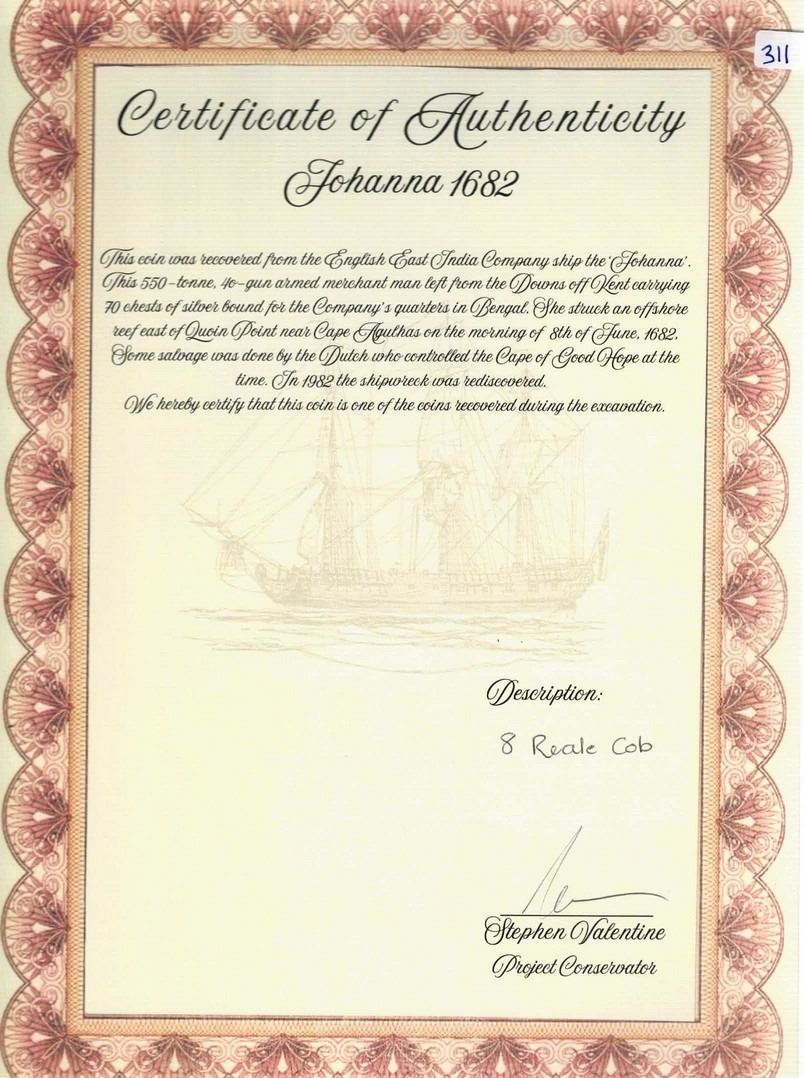 311
Certificate of Authenticity
Johanna 1682
This coin was recovered from the English East India Company ship the 'Johanna'.
This 550-tonne, 40-gun armed merchant man left from the Downs off Kent carrying
70 chests of silver bound for the Company's quarters in Bengal. She struck an offshore
reef east of Quoin Point near Cape Agulhas on the morning of 8th of June, 1682.
Some salvage was done by the Dutch who controlled the Cape of Good Hope at the
time. In 1982 the shipwreck was rediscovered.
We hereby certify that this coin is one of the coins recovered during the excavation.
Description:
8 Reale Cob
Stephen Valentine
Project Conservator